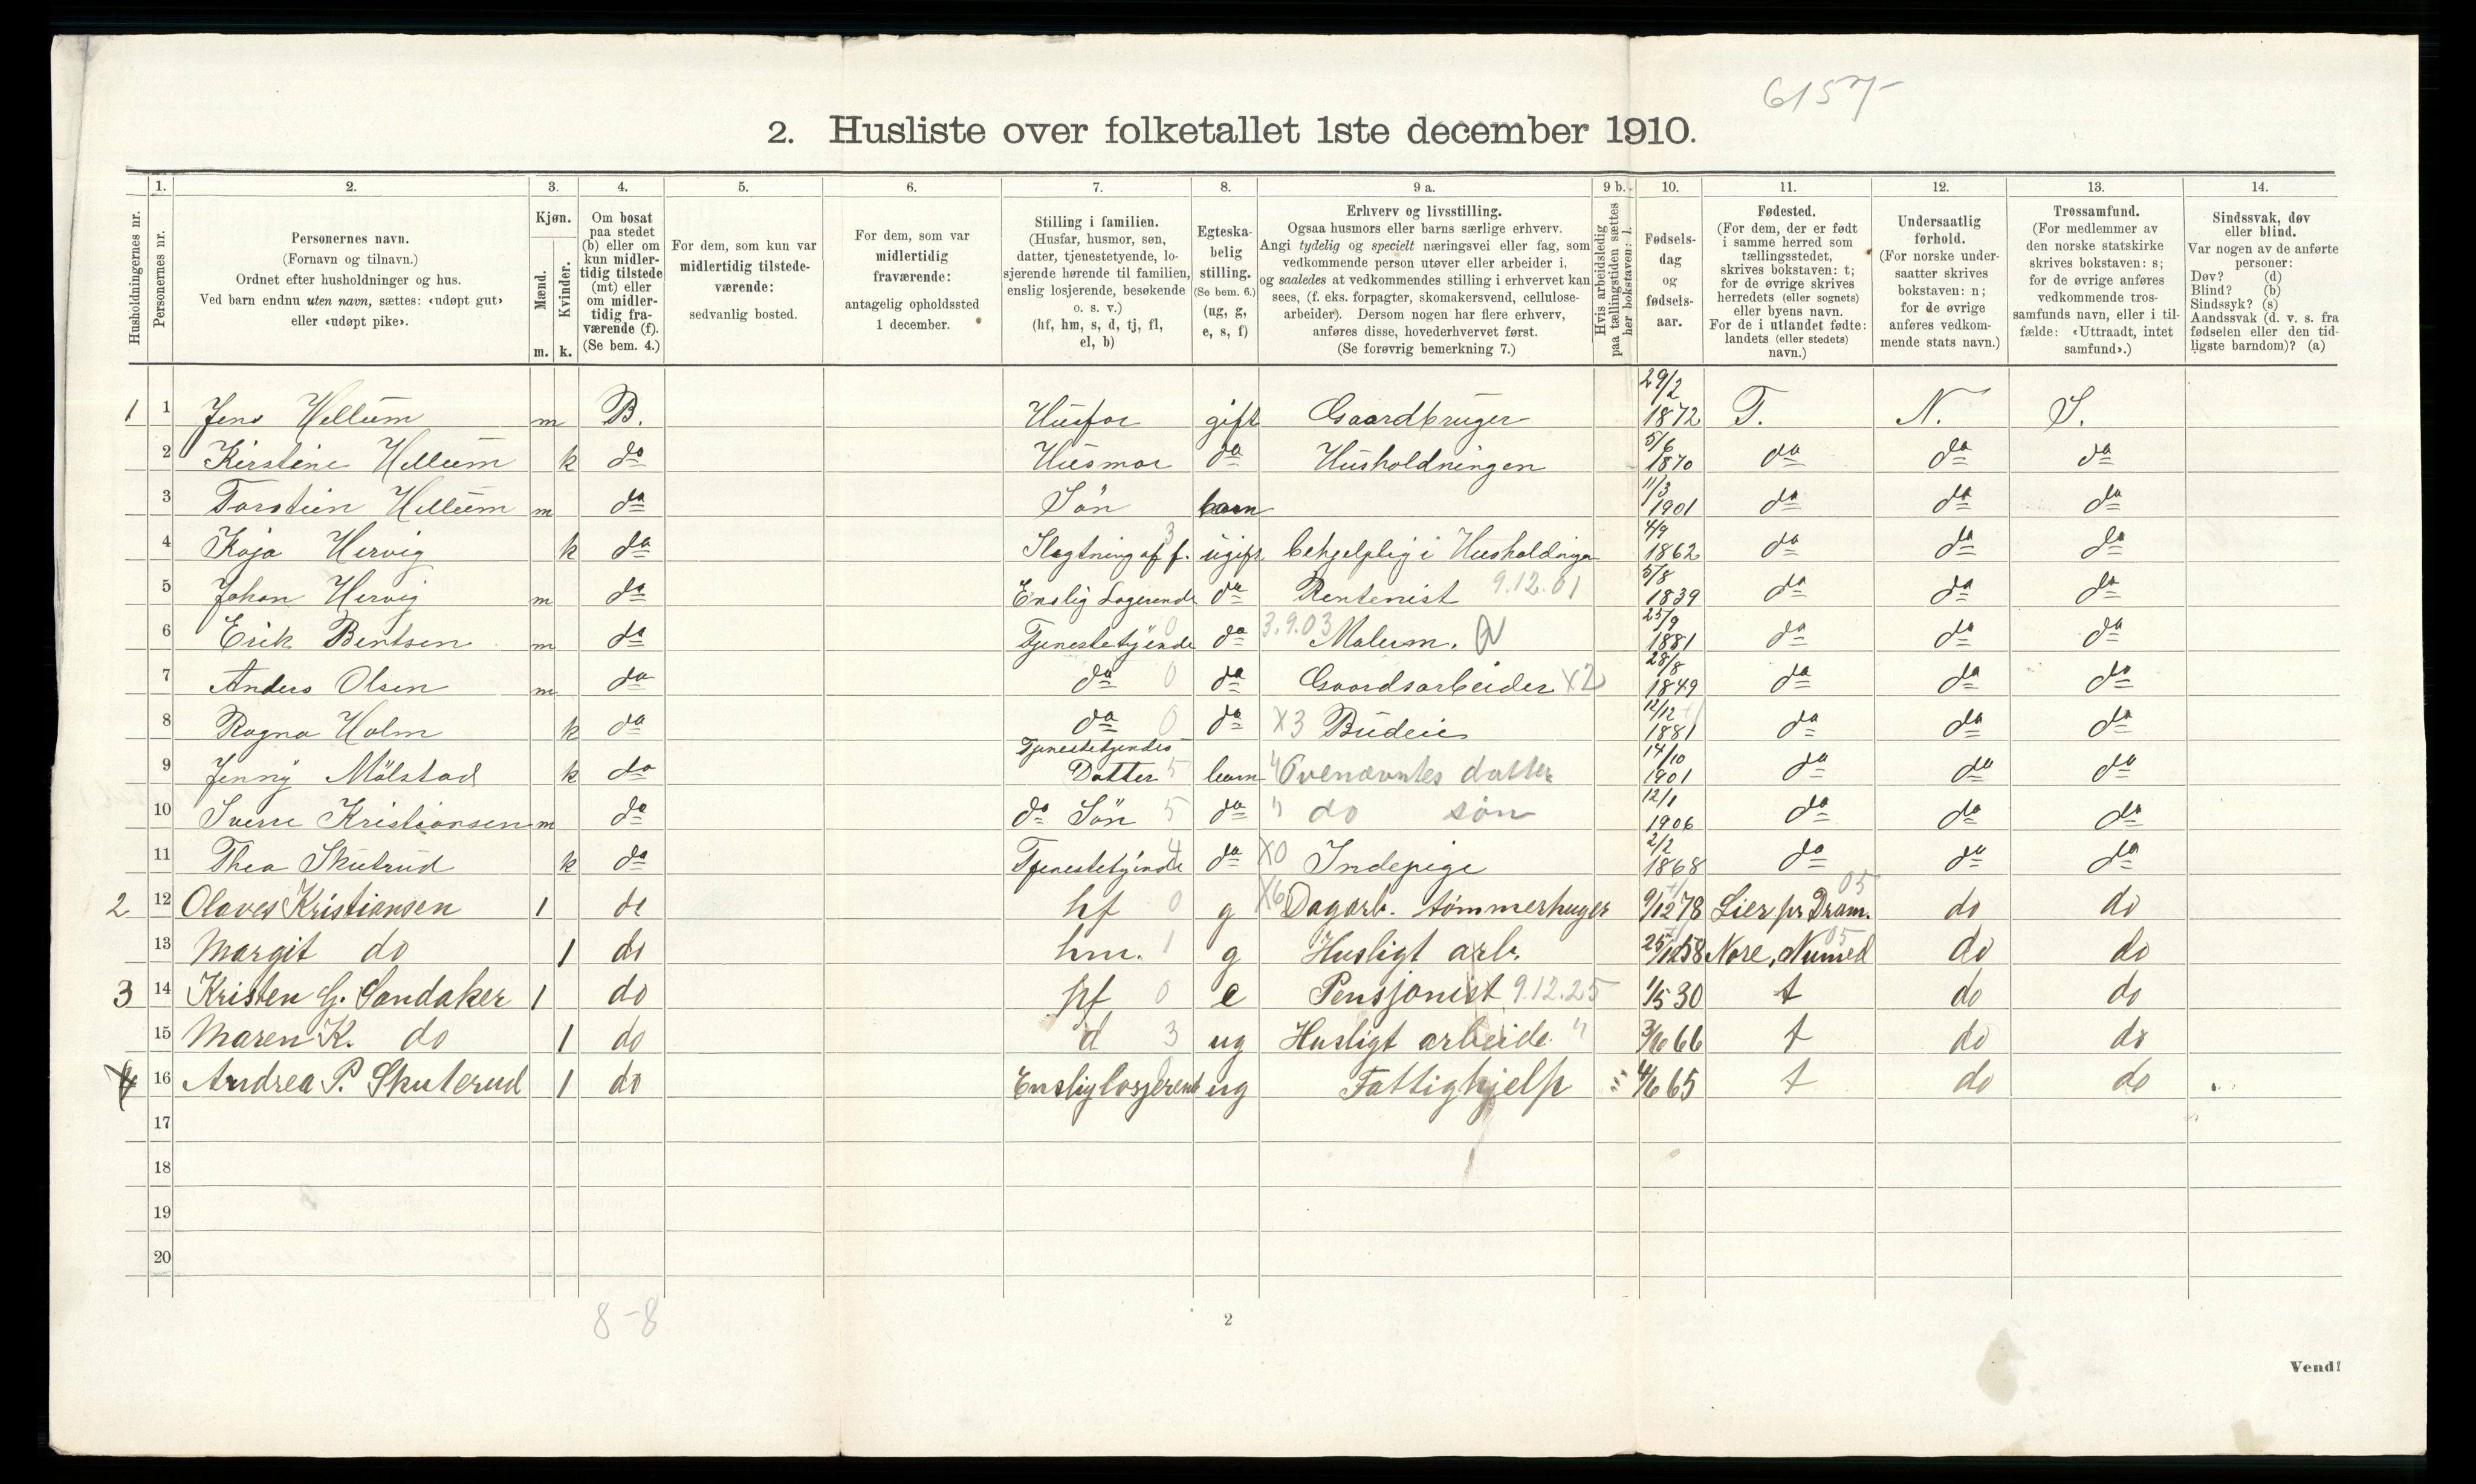 6157-
2. Husliste over folketallet 1ste december 1910.
Husholdningernes nr.
1.
Personernes nr.
2.
Personernes navn.
(Fornavn og tilnavn.)
Ordnet efter husholdninger og hus.
Ved barn endnu uten navn, sættes: «udøpt gut»
eller «udøpt pike».
3.
Kjøn.
Mænd.
Kvinder.
m. k.
4.
Om bosat
paa stedet
(b) eller om
kun midler-
tidig tilstede
(mt) eller
om midler-
tidig fra-
værende (f).
(Se bem. 4.)
5.
For dem, som kun var
midlertidig tilstede-
værende:
sedvanlig bosted.
6.
For dem, som var
midlertidig
fraværende:
antagelig opholdssted
1 december.
7.
Stilling i familien.
(Husfar, husmor, søn,
datter, tjenestetyende, lo-
sjerende hørende til familien,
enslig losjerende, besøkende
o. s. v.)
(hf, hm, s, d, tj, fl,
el, b)
8.
Egteska-
belig
stilling.
(Se bem. 6.)
(ug, g,
e, s, f)
9 a.
Erhverv og livsstilling.
Ogsaa husmors eller barns særlige erhverv.
Angi tydelig og specielt næringsvei eller fag, som
vedkommende person utøver eller arbeider i,
og saaledes at vedkommendes stilling i erhvervet kan
sees, (f. eks. forpagter, skomakersvend, cellulose-
arbeider). Dersom nogen har flere erhverv,
anføres disse, hovederhvervet først.
(Se forøvrig bemerkning 7.)
9 b.
Hvis arbeidsledig
paa tællingstiden sættes
her bokstaven: l.
10.
Fødsels-
dag
og
fødsels-
aar.
11.
Fødested.
(For dem, der er født
i samme herred som
tællingsstedet,
skrives bokstaven: t;
for de øvrige skrives
herredets (eller sognets)
eller byens navn.
For de i utlandet fødte:
landets (eller stedets)
navn.)
12.
Undersaatlig
forhold.
(For norske under-
saatter skrives
bokstaven: n;
for de øvrige
anføres vedkom-
mende stats navn.)
13.
Trossamfund.
(For medlemmer av
den norske statskirke
skrives bokstaven: s;
for de øvrige anføres
vedkommende tros-
samfunds navn, eller i til-
fælde: «Uttraadt, intet
samfund».)
14.
Sindssvak, døv
eller blind.
Var nogen av de anførte
personer:
Døv? (d)
Blind? (b)
Sindssyk? (s)
Aandssvak (d. v. s. fra
fødselen eller den tid-
ligste barndom)? (a)
1 1 Jens Hellum m B. Husfar gift Gaardbruger 29/2 1872 T. N. S.
2 Kirstine Hellum k do Husmor do Husholdningen 5/6 1870 do do do
3 Torstein Hellum m do Sön barn 11/3 1901 do do do
4 Kaja Hervig k do Slegtning af f. 3 ugift behjelplig i Husholdningen 4/9 1862 do do do
5 Johan Hervig m do Enslig Logerende do Rentenist 9.12.01 5/8 1839 do do do
6 Erik Bentsen m do Tjenestetyende 0 do 3.9.03 25/9 1881 do do do
7 Anders Olsen m do do 0 do Gaardsarbeider X2 28/8 1849 do do do
8 Ragna Holm k do do 0 do X3 Budeie 12/12 1881 do do do
9 Jenny Mölstad k do Tjenestetyendes Datter 5 barn " Ovenævntes datter 14/10 1901 do do do
10 Sverre Kristiansen m do do Sön 5 do " do søn 12/1 1906 do do do
11 Thea Skuterud k do Tjenestetyende 4 do X0 Indepige 2/2 1868 do do do
2 12 Olaves Kristiansen 1 do hf 0 g X6 Dagarb. tømmerhuger 9/12 78 Lier pr Dram. 05 do do
13 Margit do 1 do hm. 1 g Husligt arb. 25/12 58 Nore, Numed 05 do do
3 14 Kristen G. Sandaker 1 do hf 0 e Pensjonist 9.12.25 1/5 30 t do do
15 Maren K. do 1 do d 3 ug Husligt arbeide " 3/6 66 t do do
4 16 Andrea P. Skuterud 1 do Enslig losjerend ug Fattighjelp 4/6 65 t do do
17
18
19
20
8-8
2
Vend!